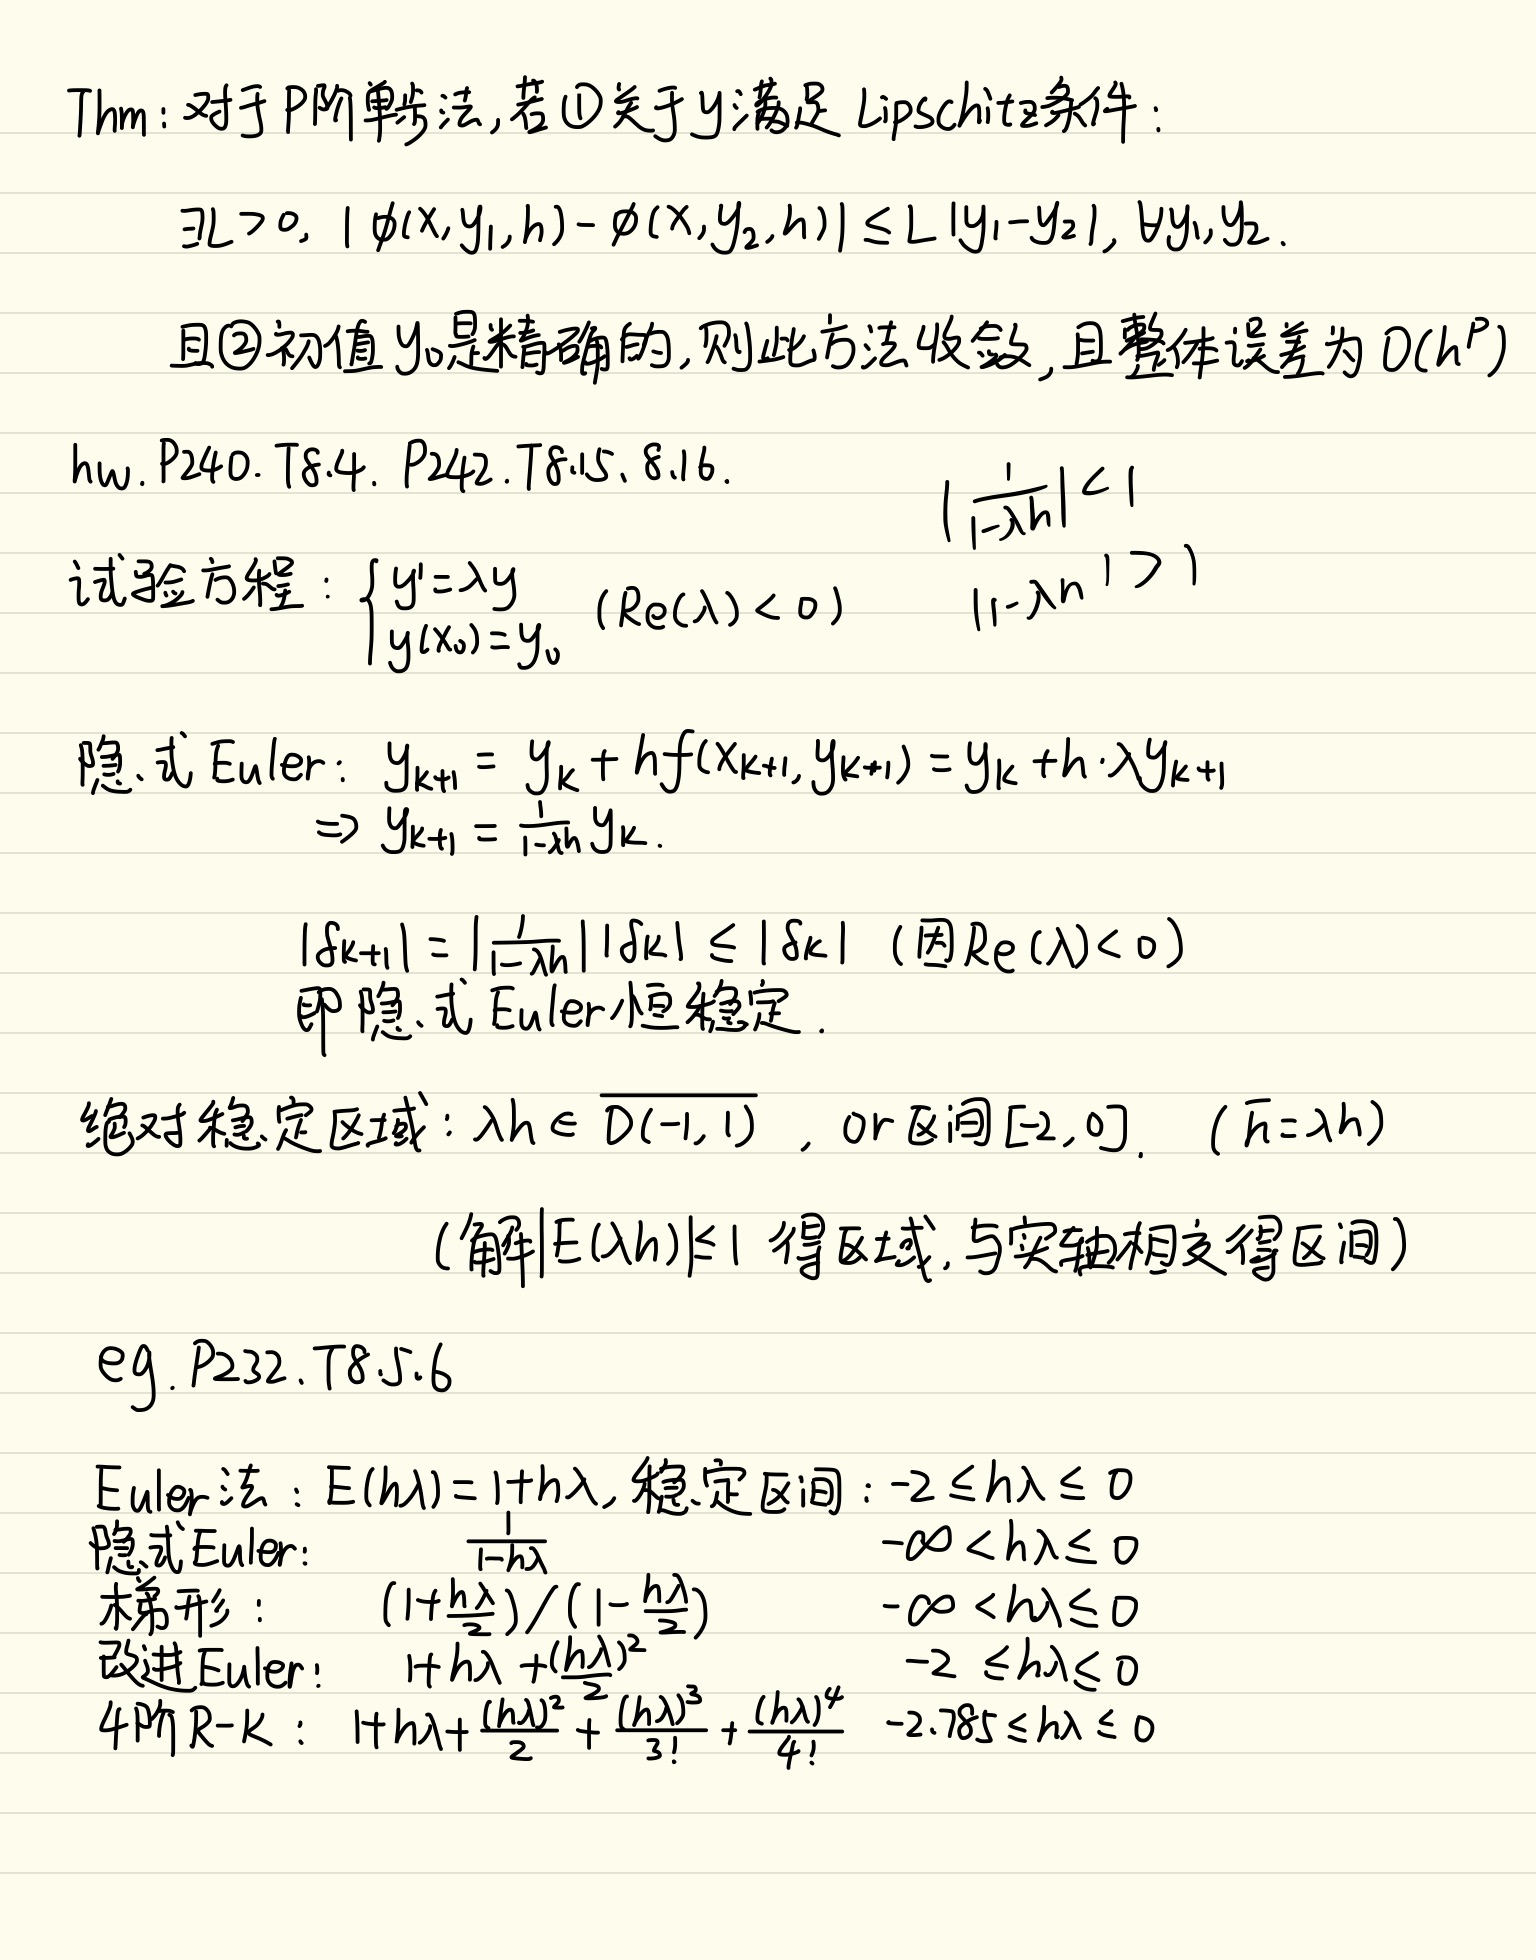 Thm: 对于P阶单步法,若①关于y满足Lipschitz条件:
∃L>0, |φ(x,y₁,h)-φ(x,y₂,h)|≤L|y₁-y₂|, ∀y₁,y₂.
且②初值y₀是精确的,则此方法收敛,且整体误差为O(hᴾ)
hw. P240. T8.4. P242. T8.15、8.16.
|1/(1-λh)|<1
|1-λh|>1
试验方程: { y'=λy
y(x₀)=y₀ (Re(λ)<0)
隐式Euler: y_{k+1} = y_k + hf(x_{k+1}, y_{k+1}) = y_k + h·λy_{k+1}
⇒ y_{k+1} = 1/(1-λh) y_k.
|δ_{k+1}| = |1/(1-λh)| |δ_k| ≤ |δ_k| (因Re(λ)<0)
即隐式Euler恒稳定.
绝对稳定区域: λh∈ \overline{D(-1,1)}, or区间[-2,0]. (\overline{h}=λh)
(解|E(λh)|≤1 得区域,与实轴相交得区间)
eg. P232. T8.5.6
Euler法: E(hλ)=1+hλ, 稳定区间: -2≤hλ≤0
隐式Euler: 1/(1-hλ) -∞<hλ≤0
梯形: (1+hλ/2)/(1-hλ/2) -∞<hλ≤0
改进Euler: 1+hλ+(hλ)²/2 -2≤hλ≤0
4阶R-K: 1+hλ+(hλ)²/2+(hλ)³/3!+(hλ)⁴/4! -2.785≤hλ≤0